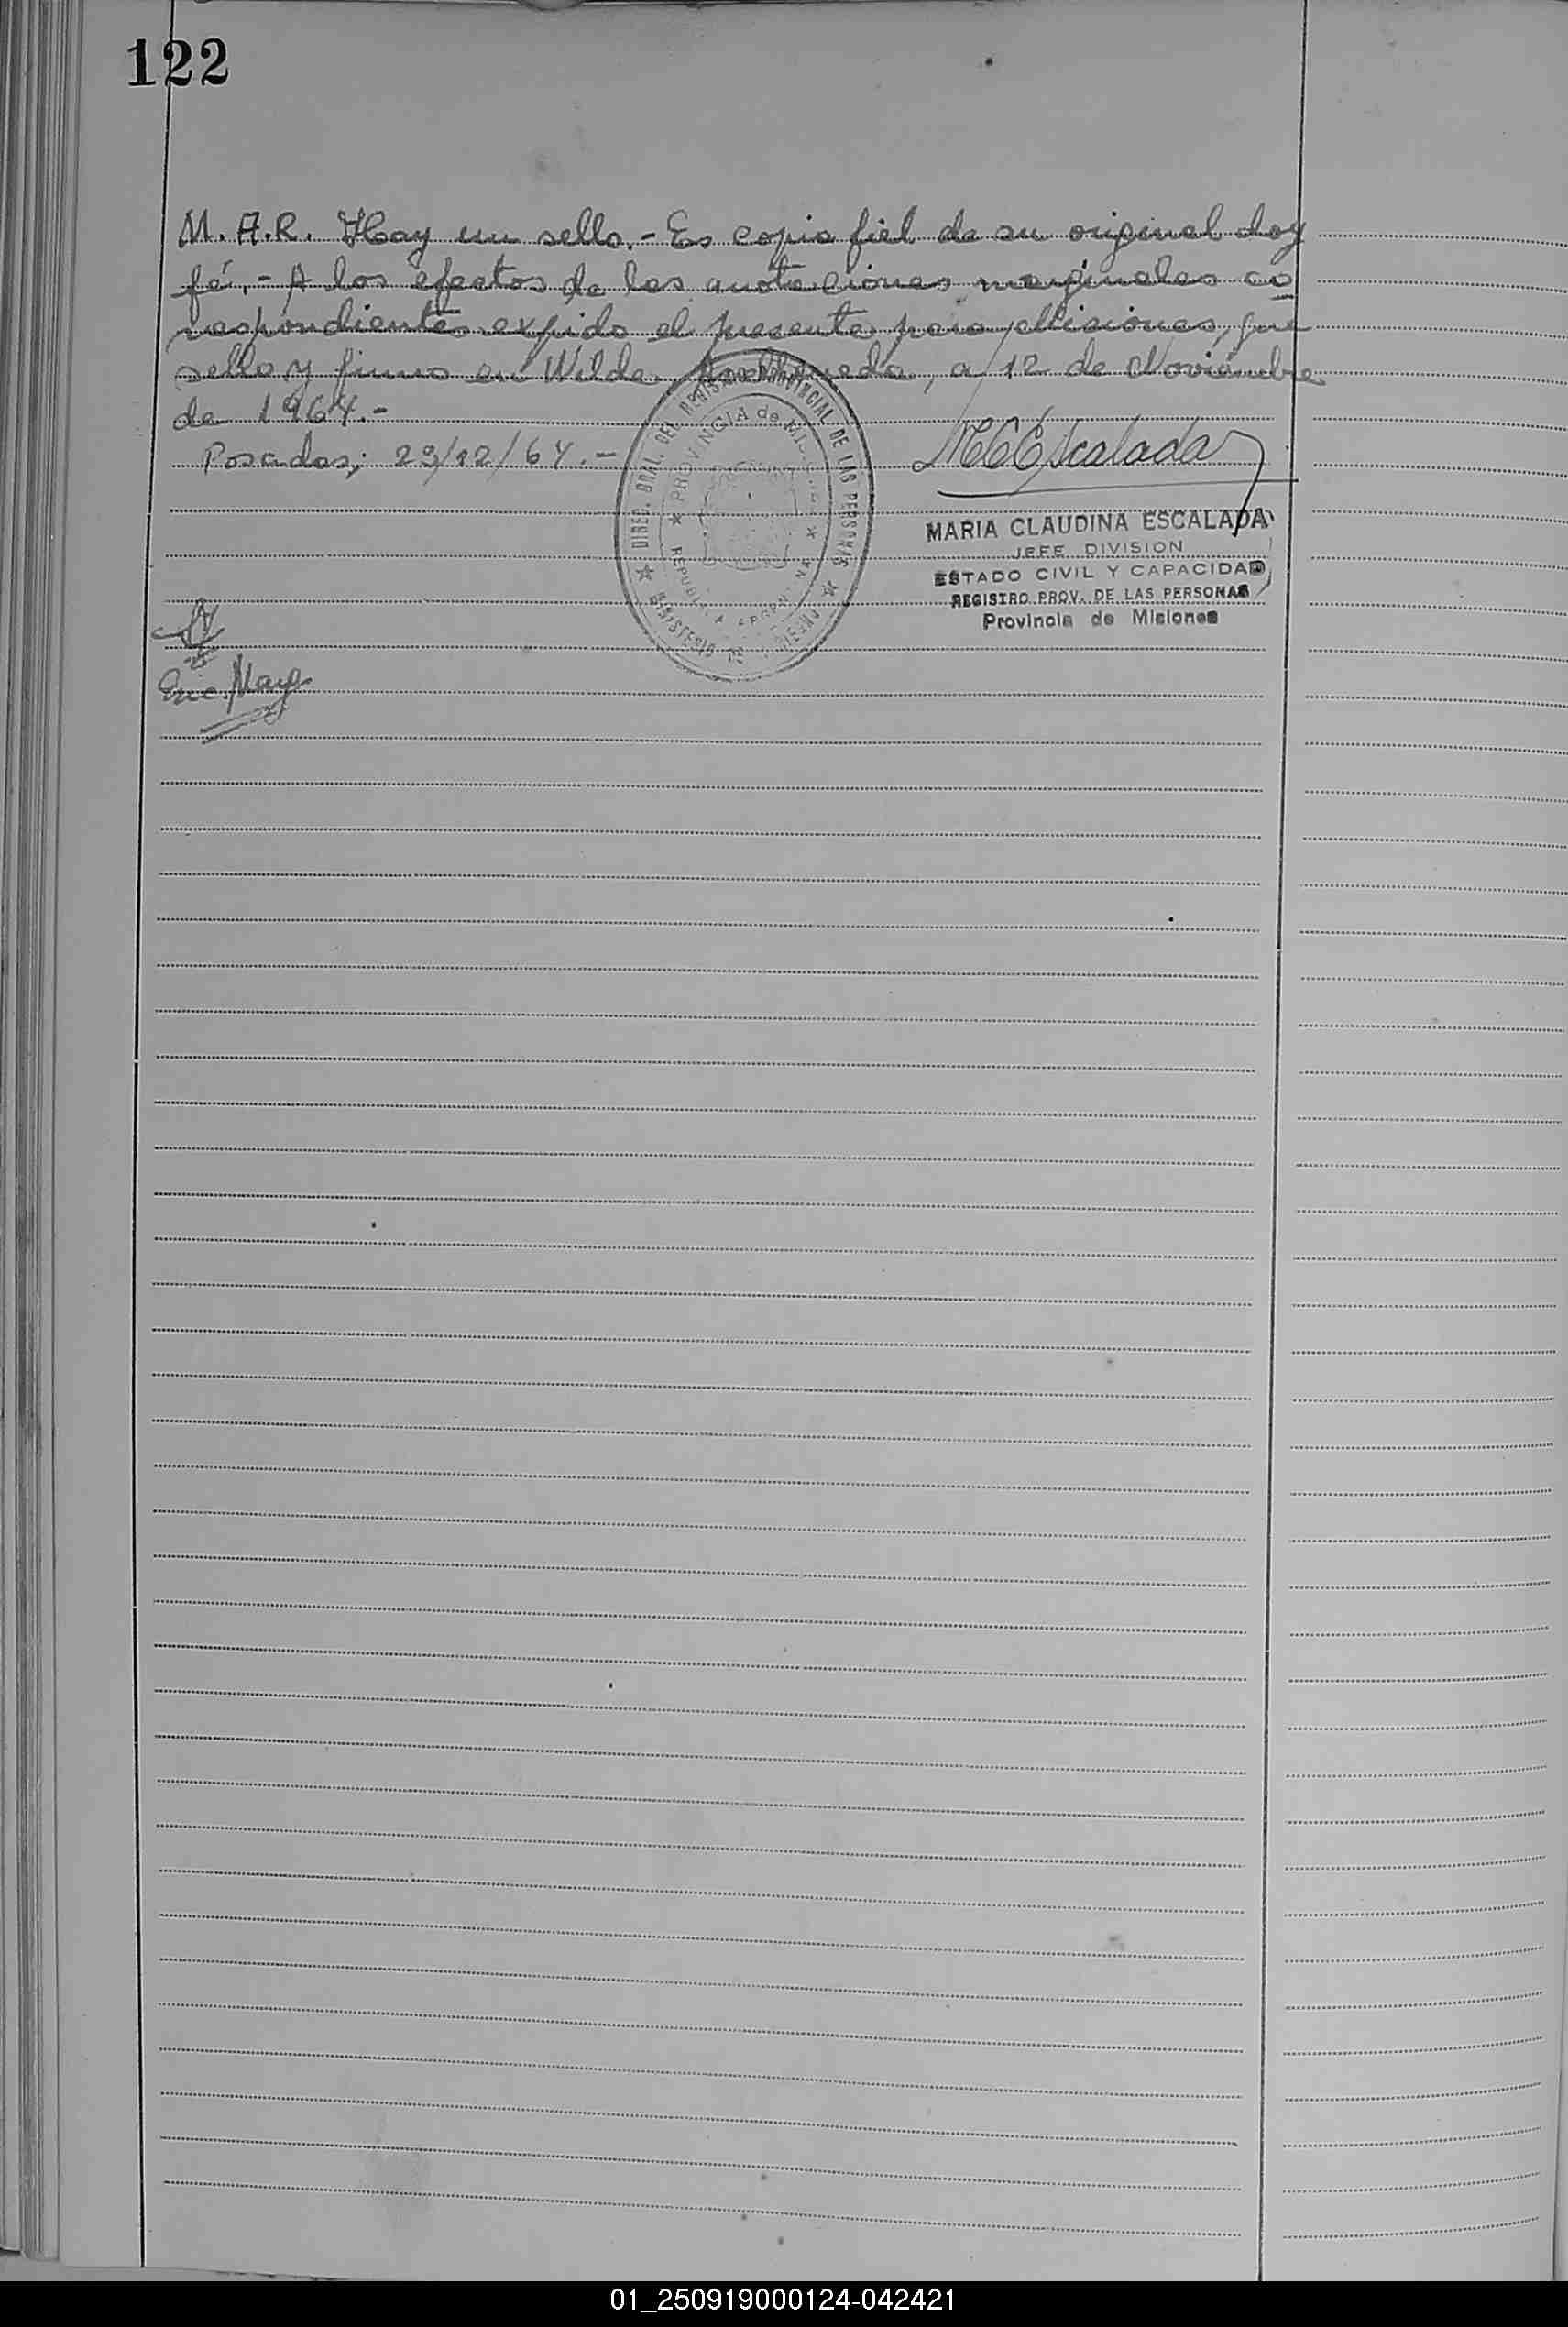 122
M. A. R. Hay un sello.- Es copia fiel de su original doy
fé.- A los efectos de las anotaciones marginales co
rrespondientes expido el presente para Misiones, que
sello y firmo en Wilde. Avellaneda, a 12 de Noviembre
de 1964.-
Posadas; 29/12/64.-
MCEscalada
DIREC. GRAL. DEL REGISTRO PROVINCIAL DE LAS PERSONAS
PROVINCIA de MISIONES
REPUBLICA ARGENTINA
MINISTERIO DE GOBIERNO
MARIA CLAUDINA ESCALADA
JEFE DIVISION
ESTADO CIVIL Y CAPACIDAD
REGISTRO PROV. DE LAS PERSONAS
Provincia de Misiones
01_250919000124-042421